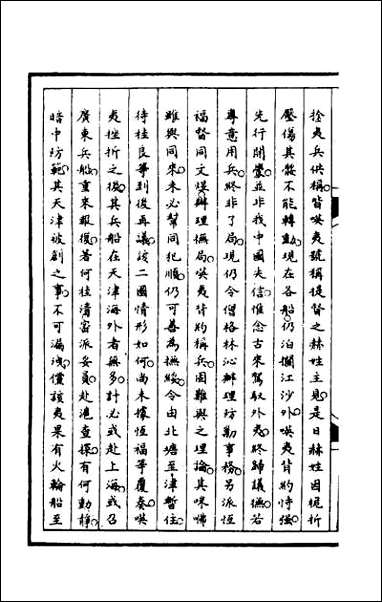 拴夷兵供稱皆𠸄夷號稱提督之赫姓主見是日赫姓因桅折
壓傷其髌不能轉動現在各船仍泊攔江沙外𠸄夷背約恃强
先行開釁並非我中國失信惟念古來駕馭外夷終歸議撫若
專意用兵終非了局現仍令僧格林沁辦理防勦事務另派恆
福督同文煜辦理撫局𠸄夷背約稱兵固難與之理論其咪𠵽
雖與同來未必幫同犯順仍可善為撫綏令由北塘至津暫住
待桂良等到後再議該二國情形如何尚未據恆福等覆奏𠸄
夷挫折之後其兵船在天津海外者無多計必或赴上海或召
廣東兵船重來報復著何桂清密派妥員赴滬查探有何動靜
暗中防範其天津被創之事不可漏洩儻該夷果有火輪船至